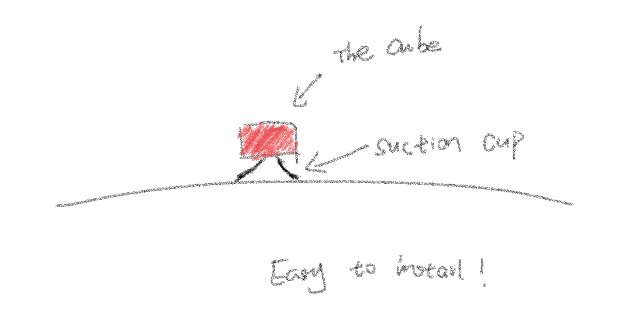 the cube
suction cup
Easy to install!